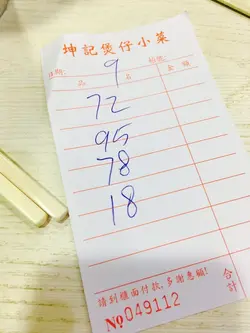 坤記煲仔小菜
9
日期: 枱號:
品 名 金額
72
95
78
18
請到櫃面付款,多謝惠顧!
No 049112